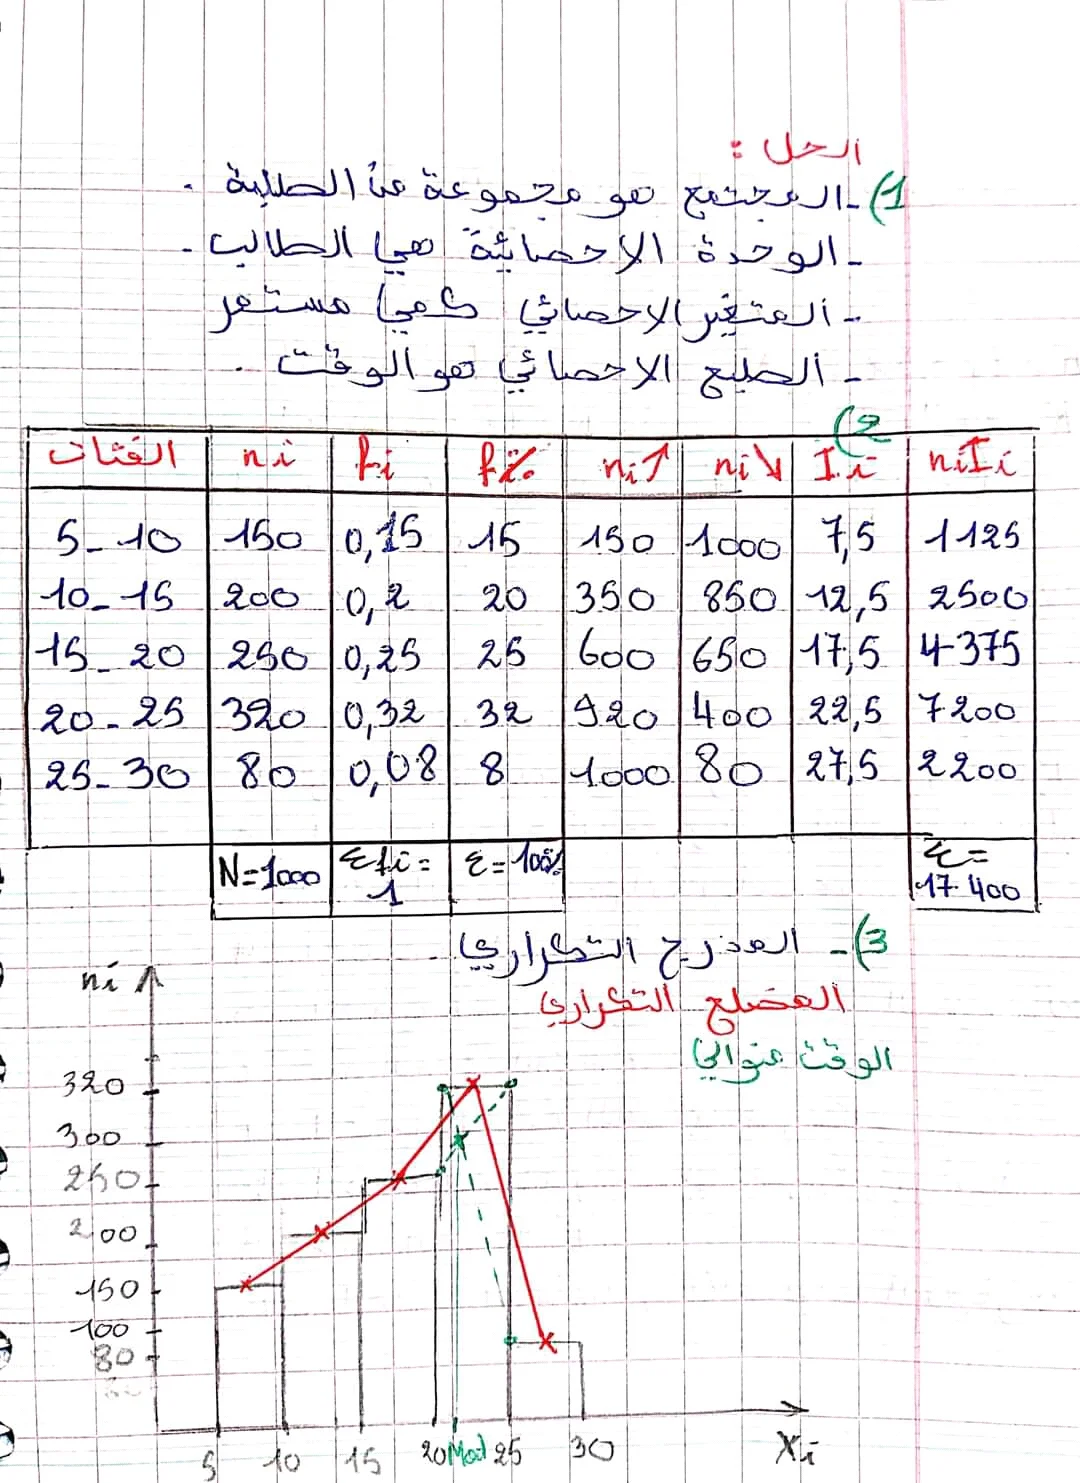 الحل :
1)- المجتمع هو مجموعة من الطلبة .
- الوحدة الاحصائية هي الطالب .
- المتغير الاحصائي كمي مستمر
- الطبع الاحصائي هو الوقت .
2)
الفئات ni fi f% ni↑ ni↘ Ii niIi
5-10 150 0,15 15 150 1000 7,5 1125
10-15 200 0,2 20 350 850 12,5 2500
15-20 250 0,25 25 600 650 17,5 4375
20-25 320 0,32 32 920 400 22,5 7200
25-30 80 0,08 8 1000 80 27,5 2200
N=1000 Σfi=1 Σ=100% Σ=17400
3)- المدرج التكراري .
المضلع التكراري
الوقت منوالي
ni
320
300
250
200
150
100
80
5 10 15 20 Mod 25 30 Xi